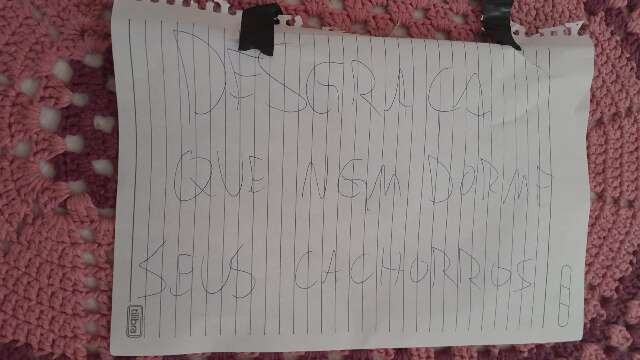 DESGRACA
QUE NEM DORME
SEUS CACHORROS
tilibra